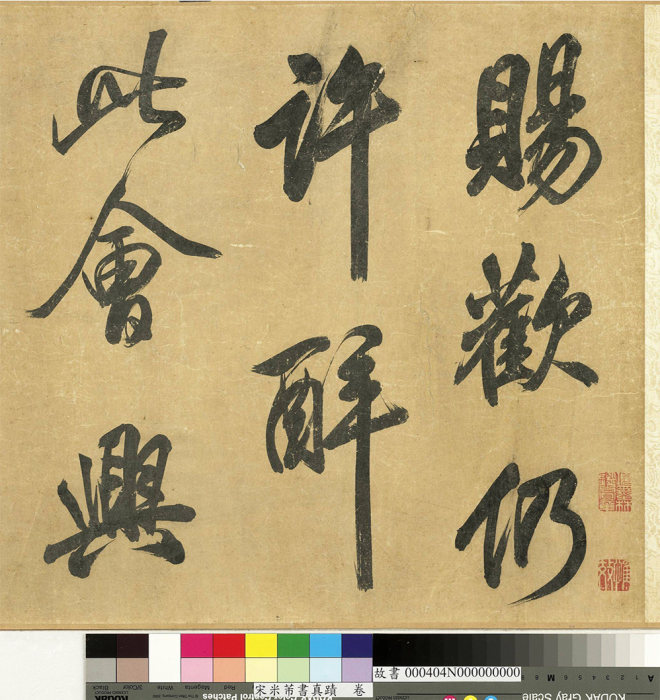 賜歡仍
許醉
此會興
故書 000404N000000000
宋米芾書真蹟 卷
KODAK Gray Scale
Kodak
Control Patches
Black
3/Color
White
Magenta
Red
A 1 2 3 4 5 6 M 8